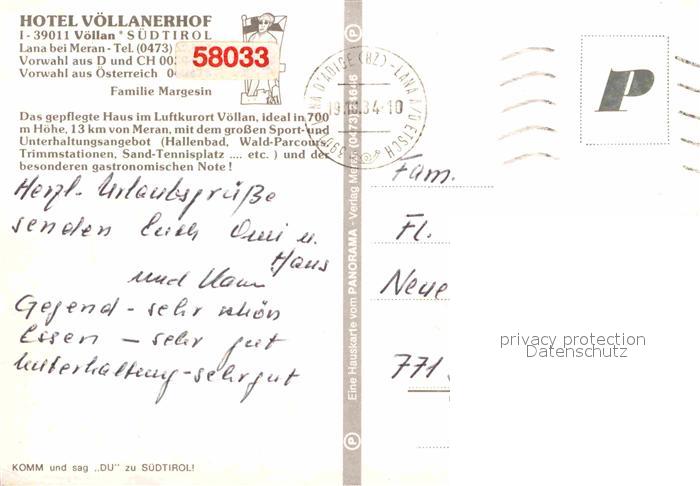 HOTEL VÖLLANERHOF
I - 39011 Völlan * SÜDTIROL
Lana bei Meran - Tel. (0473)
58033
Vorwahl aus D und CH 00
Vorwahl aus Österreich 04
Familie Margesin
Das gepflegte Haus im Luftkurort Völlan, ideal in 700
m Höhe, 13 km von Meran, mit dem großen Sport- und
Unterhaltungsangebot (Hallenbad, Wald-Parcour,
Trimmstationen, Sand-Tennisplatz .... etc. ) und der
besonderen gastronomischen Note !
Herzl. Urlaubsgrüße
senden Euch Omi u.
Hans
und
Gegend - sehr schön
Essen - sehr gut
Unterhaltung - sehr gut
KOMM und sag „DU" zu SÜDTIROL!
P
Eine Hauskarte vom PANORAMA - Verlag Meran (0473)
P
LANA D'ADIGE (BZ) - LANA A/D ETSCH
84-10
P
Fam.
Fl.
Neue
771
privacy protection
Datenschutz